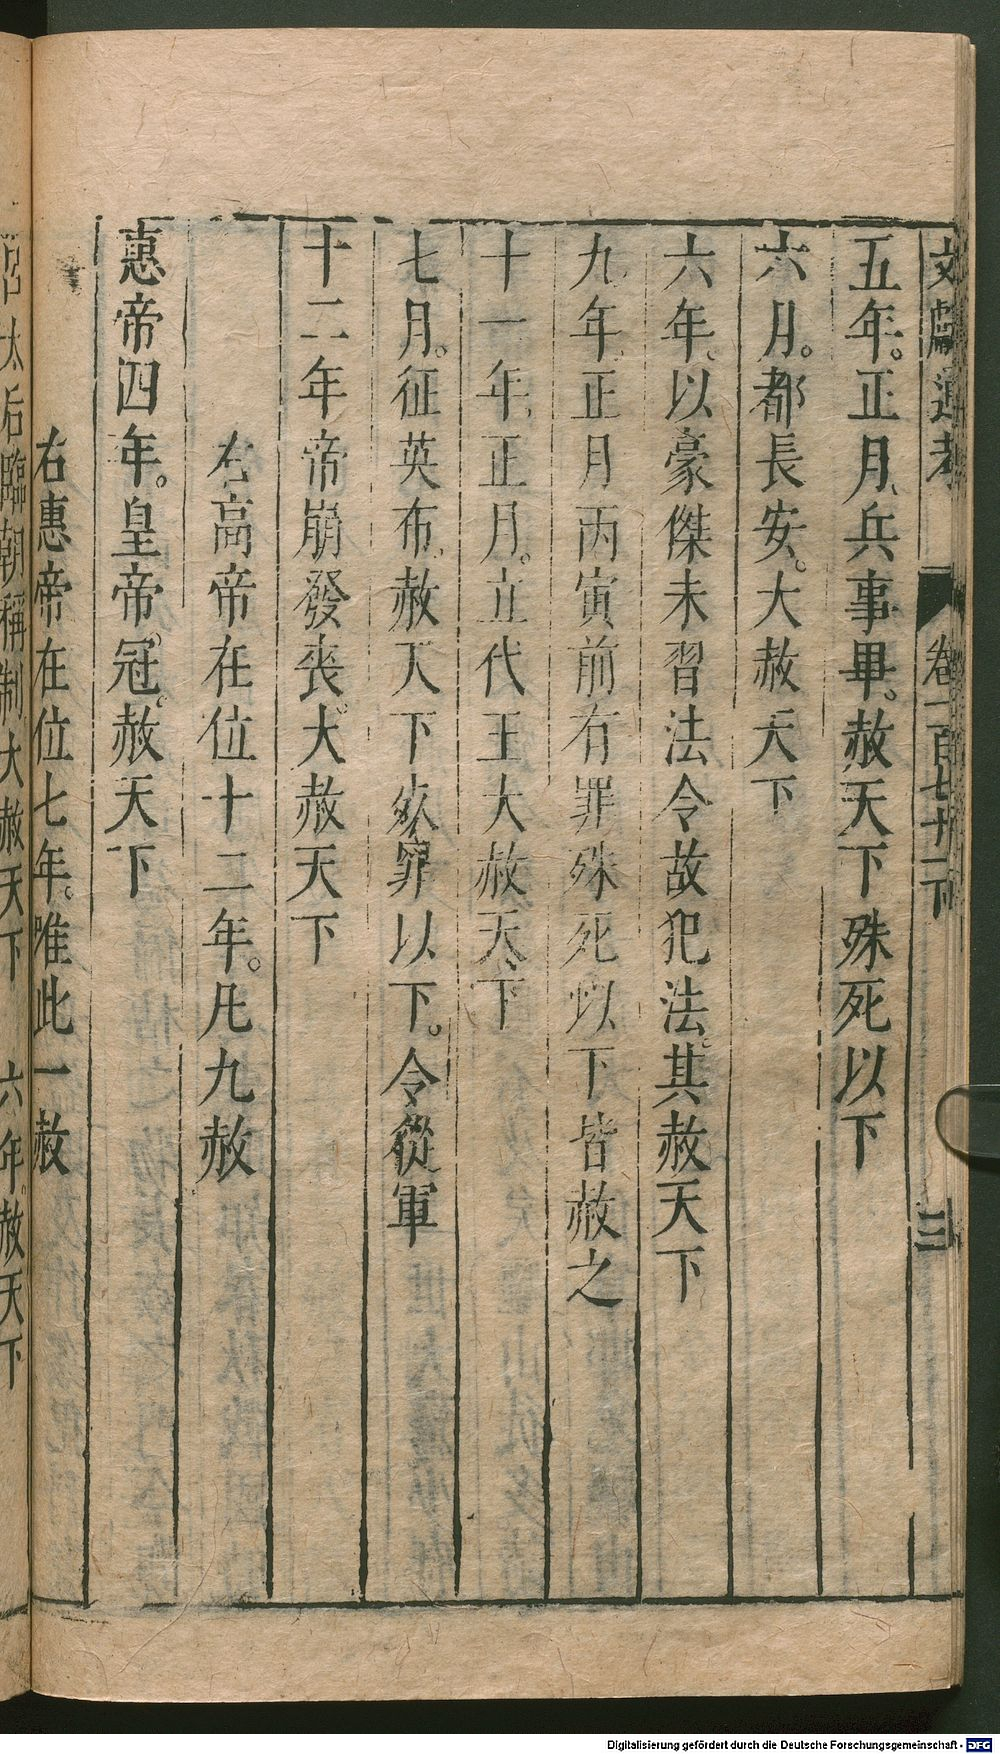 文獻通考 卷一百七十二下 三
五年。正月、兵事畢。赦天下殊死以下
六月。都長安。大赦天下
六年、以豪傑未習法令故犯法。其赦天下
九年、正月丙寅前有罪殊死以下皆赦之
十一年、正月。立代王大赦天下
七月。征英布、赦天下死罪以下。令從軍
十二年帝崩發喪。大赦天下
右高帝在位十二年。凡九赦
惠帝四年。皇帝冠。赦天下
右惠帝在位七年。唯此一赦
太后臨朝稱制、大赦天下 六年。赦天下
Digitalisierung gefördert durch die Deutsche Forschungsgemeinschaft - DFG